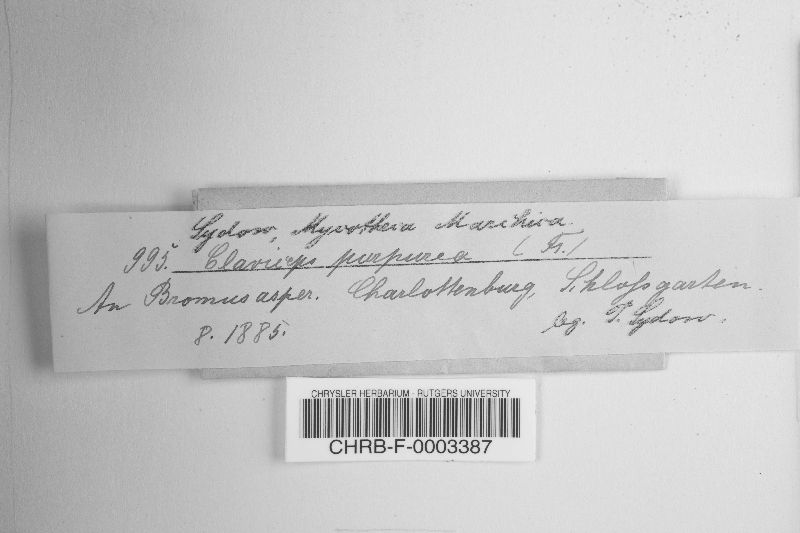 Sydow, Mycotheca Marchica.
995. Claviceps purpurea (Fr.)
An Bromus asper. Charlottenburg, Schloßgarten.
8. 1885. leg. P. Sydow.
CHRYSLER HERBARIUM - RUTGERS UNIVERSITY
CHRB-F-0003387